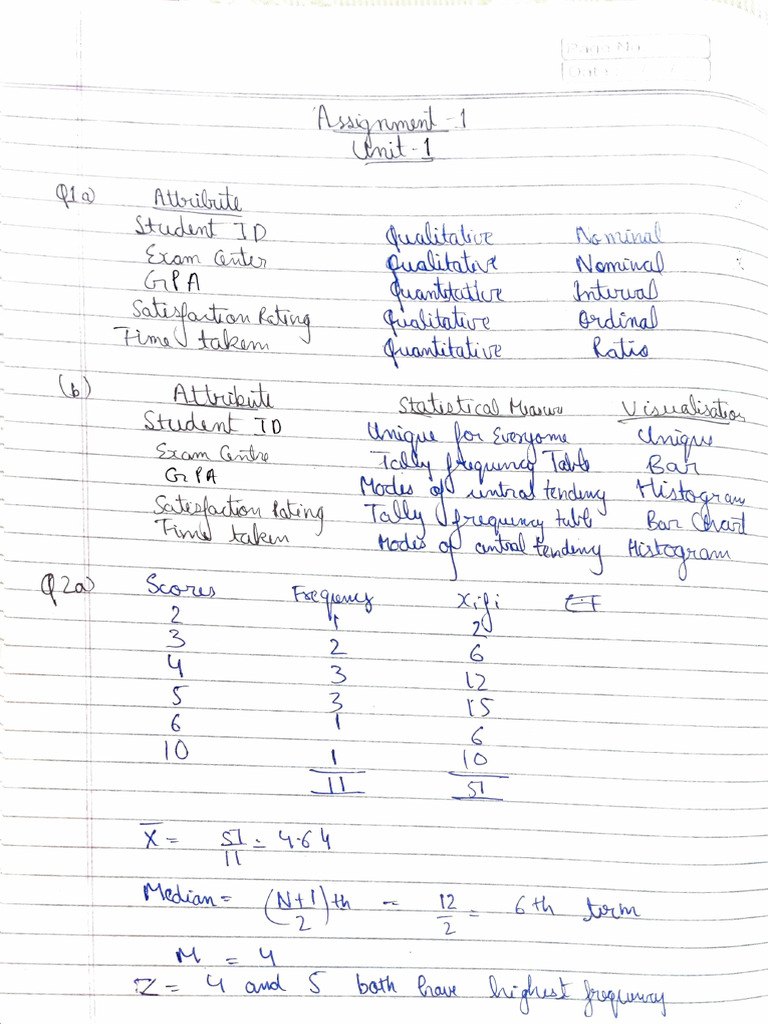 Page No.
Date
Assignment - 1
Unit - 1
Q1a) Attribute
Student ID Qualitative Nominal
Exam Center Qualitative Nominal
GPA Quantitative Interval
Satisfaction Rating Qualitative Ordinal
Time taken Quantitative Ratio
(b) Attribute Statistical Measure Visualisation
Student ID Unique for Everyone Unique
Exam Centre Tally frequency Table Bar
GPA Modes of central tendency Histogram
Satisfaction Rating Tally frequency table Bar Chart
Time taken Modes of central tendency Histogram
Q2a) Scores Frequency Xifi
2 1 2
3 2 6
4 3 12
5 3 15
6 1 6
10 1 10
11 51
X̄ = 51/11 = 4.64
Median = (N+1/2)th = 12/2 = 6th term
M = 4
Z = 4 and 5 both have highest frequency